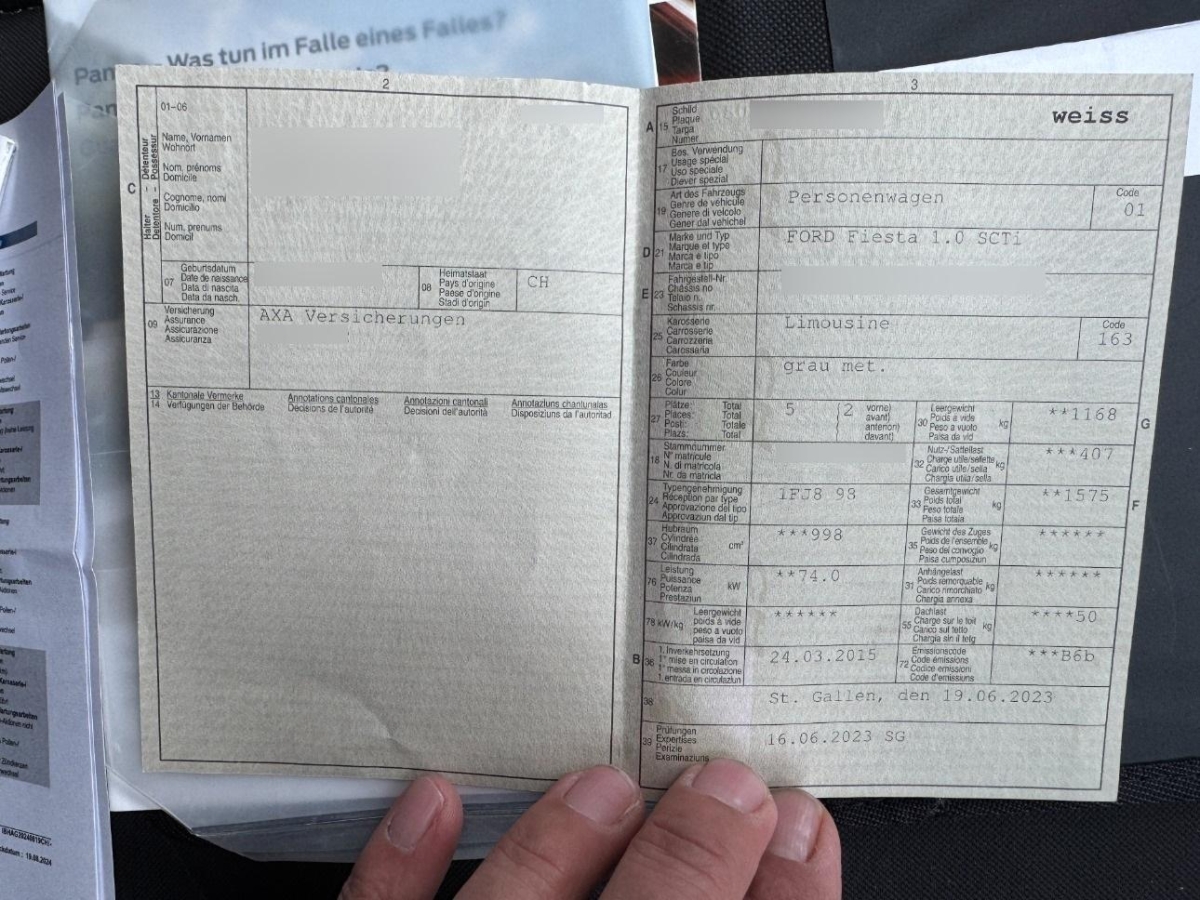 Was tun im Falle eines Falles?
2
01-06
C
Halter - Détenteur
Detentore - Possessur
Name, Vornamen
Wohnort
Nom, prénoms
Domicile
Cognome, nomi
Domicilio
Num, prenums
Domicil
07
Geburtsdatum
Date de naissance
Data di nascita
Data da nasch.
08
Heimatstaat
Pays d'origine
Paese d'origine
Stadi d'origin
CH
09
Versicherung
Assurance
Assicurazione
Assicuranza
AXA Versicherungen
13 Kantonale Vermerke
14 Verfügungen der Behörde
Annotations cantonales
Décisions de l'autorité
Annotazioni cantonali
Decisioni dell'autorità
Annotaziuns chantunalas
Disposiziuns da l'autoritad
3
A 15
Schild
Plaque
Targa
Numer
weiss
17
Bes. Verwendung
Usage spécial
Uso speciale
Diever spezial
19
Art des Fahrzeugs
Genre de véhicule
Genere di veicolo
Gener dal vehichel
Personenwagen
Code
01
D 21
Marke und Typ
Marque et type
Marca e tipo
Marca e tip
FORD Fiesta 1.0 SCTi
E 23
Fahrgestell-Nr.
Châssis no
Telaio n.
Schassis nr.
25
Karosserie
Carrosserie
Carrozzeria
Carosseria
Limousine
Code
163
26
Farbe
Couleur
Colore
Colur
grau met.
27
Plätze: Total
Places: Total
Posti: Totale
Plazs: Total
5 (2
vorne)
avant)
anteriori)
davant)
30
Leergewicht
Poids à vide
Peso a vuoto
Paisa da vid
kg
**1168
G
18
Stammnummer
N° matricule
N. di matricola
Nr. da matricla
32
Nutz-/Sattellast
Charge utile/sellette
Carico utile/sella
Chargia utila/sella
kg
***407
24
Typengenehmigung
Réception par type
Approvazione del tipo
Approvaziun dal tip
1FJ8 98
33
Gesamtgewicht
Poids total
Peso totale
Paisa totala
kg
**1575
F
37
Hubraum
Cylindrée
Cilindrata
Cilindrada
cm³
***998
35
Gewicht des Zuges
Poids de l'ensemble
Peso del convoglio
Paisa cumposiziun
kg
******
76
Leistung
Puissance
Potenza
Prestaziun
kW
**74.0
31
Anhängelast
Poids remorquable
Carico rimorchiato
Chargia annexa
kg
******
78 kW/kg
Leergewicht
poids à vide
peso a vuoto
paisa da vid
******
55
Dachlast
Charge sur le toit
Carico sul tetto
Chargia sin il tetg
kg
****50
B 36
1. Inverkehrsetzung
1re mise en circulation
1a messa in circolazione
1. entrada en circulaziun
24.03.2015
72
Emissionscode
Code émissions
Codice emissioni
Code d'emissiuns
***B6b
38
St. Gallen, den 19.06.2023
39
Prüfungen
Expertises
Perizie
Examinaziuns
16.06.2023 SG